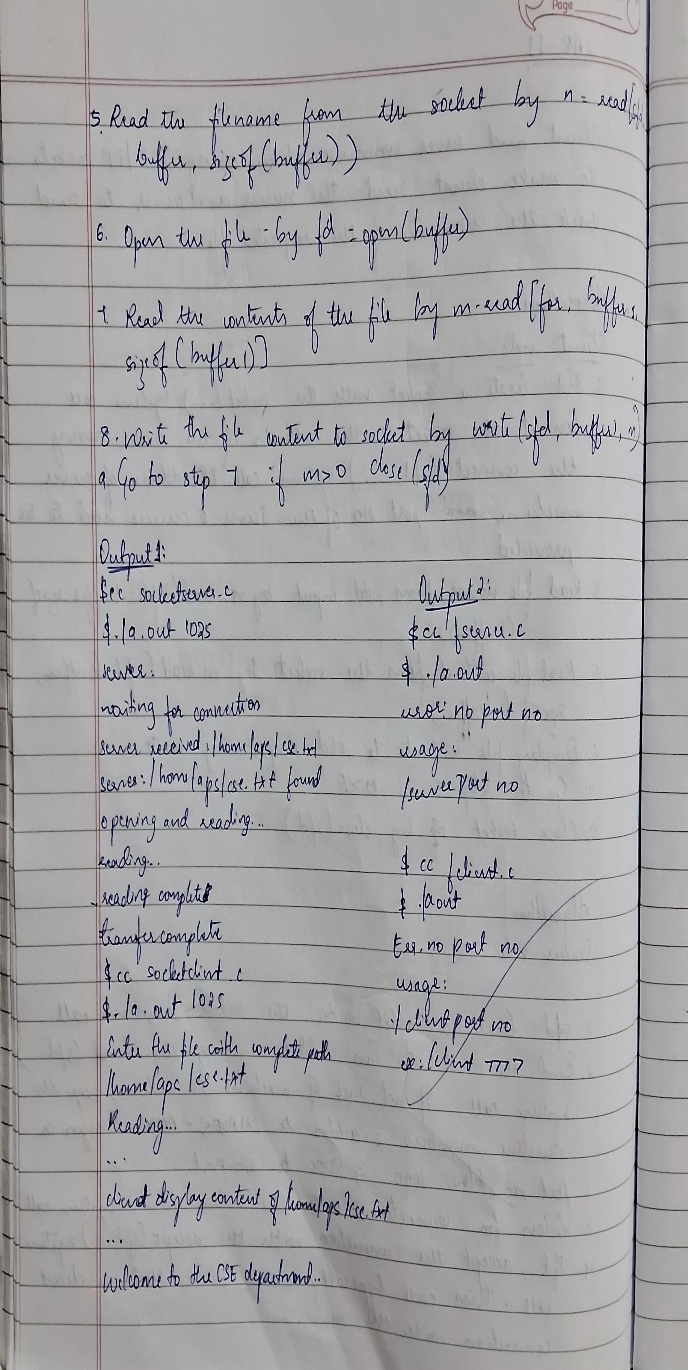 Page
5. Read the filename from the socket by n = read(sfd,
buffer, sizeof(buffer))
6. Open the file by fd = open(buffer)
7 Read the contents of the file by m-read [for, buffer1,
sizeof (buffer1)]
8. write the file content to socket by write (sfd, buffer1, m)
9. Go to step 7 if m>0 close (sfd)
Output 1:
$cc socketserver.c
$./a.out 1025
server:
waiting for connection
server received:/home/aps/cse.txt
server:/home/aps/cse.txt found
opening and reading...
reading...
reading complete
transfer complete
$cc socketclint.c
$./a.out 1025
Enter the file with complete path
/home/aps/cse.txt
Reading...
...
client display content of /home/aps/cse.txt
...
welcome to the CSE department..
Output 2:
$cc fserver.c
$ ./a.out
usor: no port no
usage:
/server port no
$ cc fclient.c
$ ./a.out
Err. no port no
usage:
./client port no
ex:/client 7777